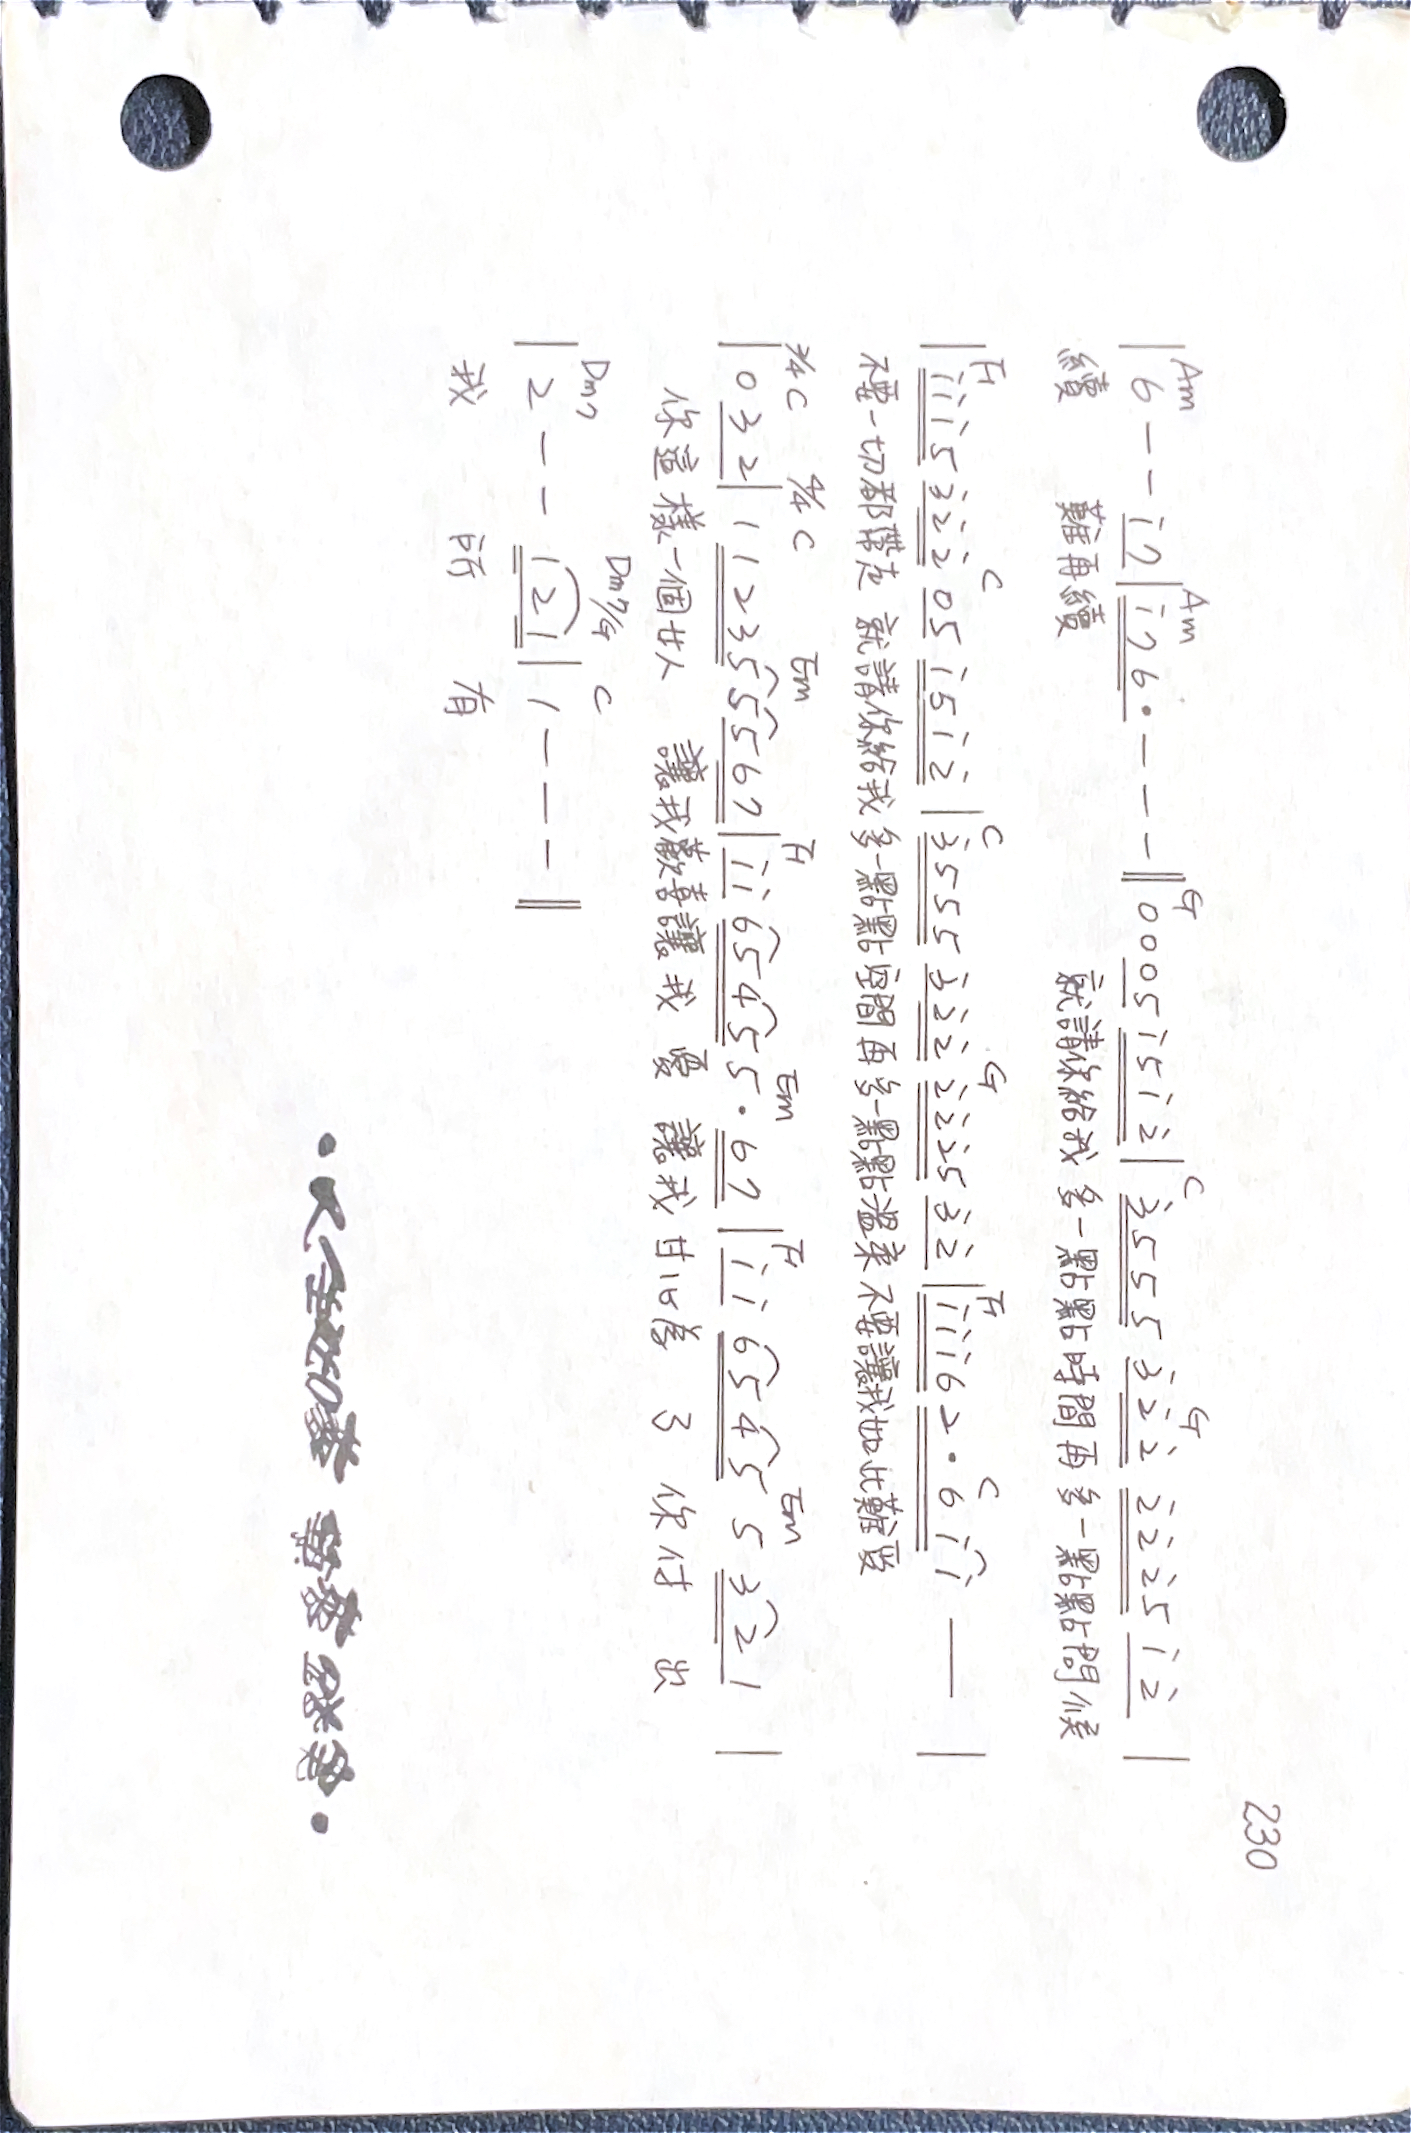 230
Am Am G C G
| 6 - - i 7 | i 7 6 • - - - || 0 0 0 5 i 5 i 2̇ | 3̇ 5 5 5 3̇ 2̇ 2̇ 2̇ 2̇ 2̇ 5 i 2̇ |
續 難再續 就請你給我多一點點時間再多一點點問候
F C C G F C
| i i i 5 3̇ 2̇ 2̇ 0 5 i 5 i 2̇ | 3̇ 5 5 5 3̇ 2̇ 2̇ 2̇ 2̇ 2̇ 5 3̇ 2̇ | i i i 6 2 • 6 i i — |
不要一切都帶走 就請你給我多一點點空間再多一點點溫柔不要讓我如此難受
3/4 C 4/4 C Em F Em F Em
| 0 3 2 | 1 1 2 3 5 5 5 6 7 | i i 6 5 4 5 5 • 6 7 | i i 6 5 4 5 5 3 2 1 |
你這樣一個女人 讓我歡喜讓我憂 讓我甘心為 了 你付 出
Dm7 Dm7/G C
| 2 - - 1 2 1 | 1 - - - ||
我 所 有